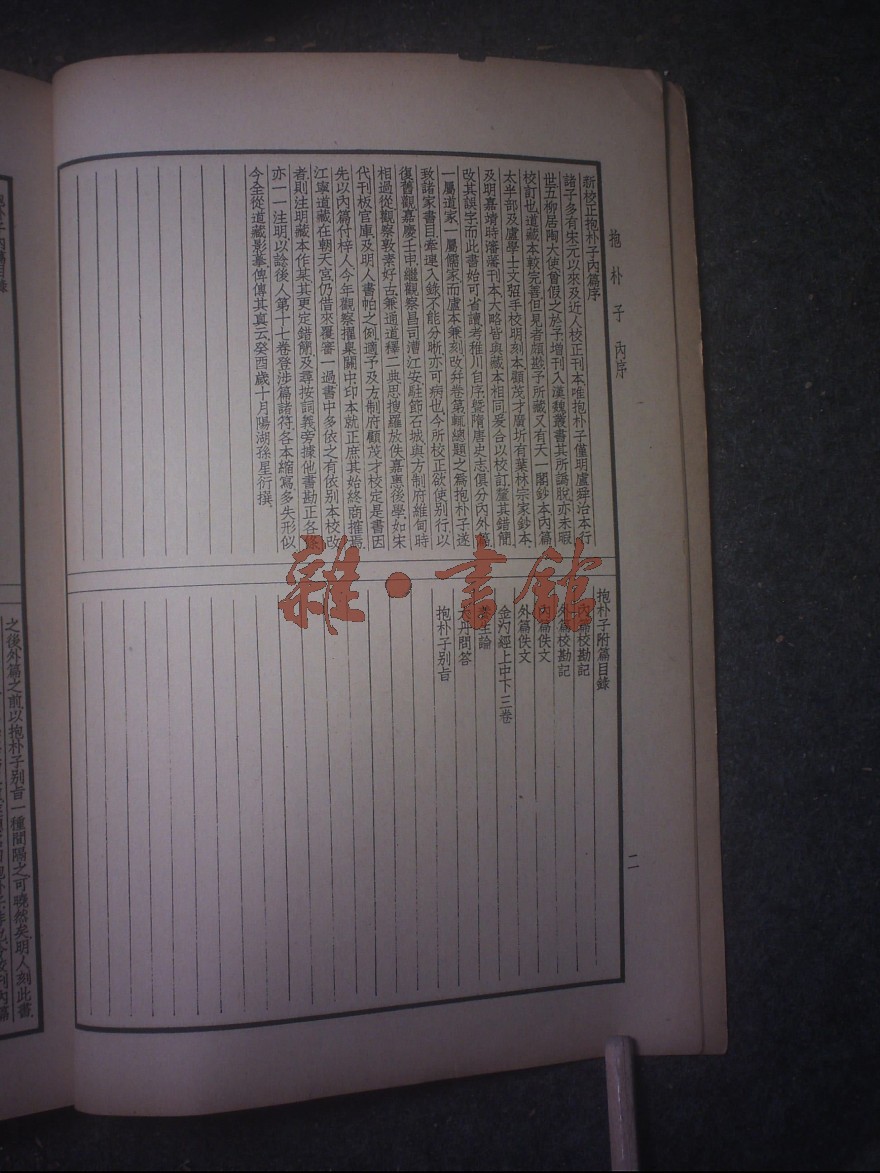 抱朴子 內序
新校正抱朴子內篇序
諸子多有宋元以來及近人校正刊本唯抱朴子僅明盧舜治本行
世五柳居陶大使曾假之於予增刊入漢魏叢書其所譌脫亦未暇
校訂也道藏本較完善但見者頗尠予所藏又有天一閣鈔本內篇
太半部及盧學士文弨手校明刻本顧茂才廣圻有葉林宗家鈔本
及明嘉靖時瀋藩刊本大略皆與藏本相同爰合以校訂釐其錯簡
改其誤字而此書始可省讀考稚川自序暨隋唐史志俱分內外篇
一屬道家一屬儒家而盧本兼刻改并卷第輒總題之篇抱朴子遂
致諸家書目牽連入錄不能分晰亦可病也今所校正欲使別行以
復舊觀嘉慶壬申繼觀察昌司漕江安駐節石城與方制府維甸時
相過從觀察敦素好古兼通道釋二典思搜羅放佚嘉惠後學如宋
代刊板官庫及明人書帕之例適予及方制府顧茂才校定是書因
先以內篇付梓人今年觀察擢臬關中印本就正庶其始終商搉焉
江寧道藏在朝天宮仍借來覆審一過書中多依之有依別本校改
者則注明藏本作某其更定錯簡及尋按詞義旁據他書勘正各條
亦一一注明以諗後人第十七卷登涉篇諸符各本縮寫多失形似
今全從道藏影摹俾傳其真云癸酉歲十月陽湖孫星衍撰
抱朴子附篇目錄
內篇校勘記
外篇校勘記
內篇佚文
外篇佚文
金汋經上中下三卷
養生論
大丹問答
抱朴子別旨
二
雜·書館
抱朴子內篇目錄
之後外篇之前以抱朴子別旨一種間隔之可曉然矣明人刻此書